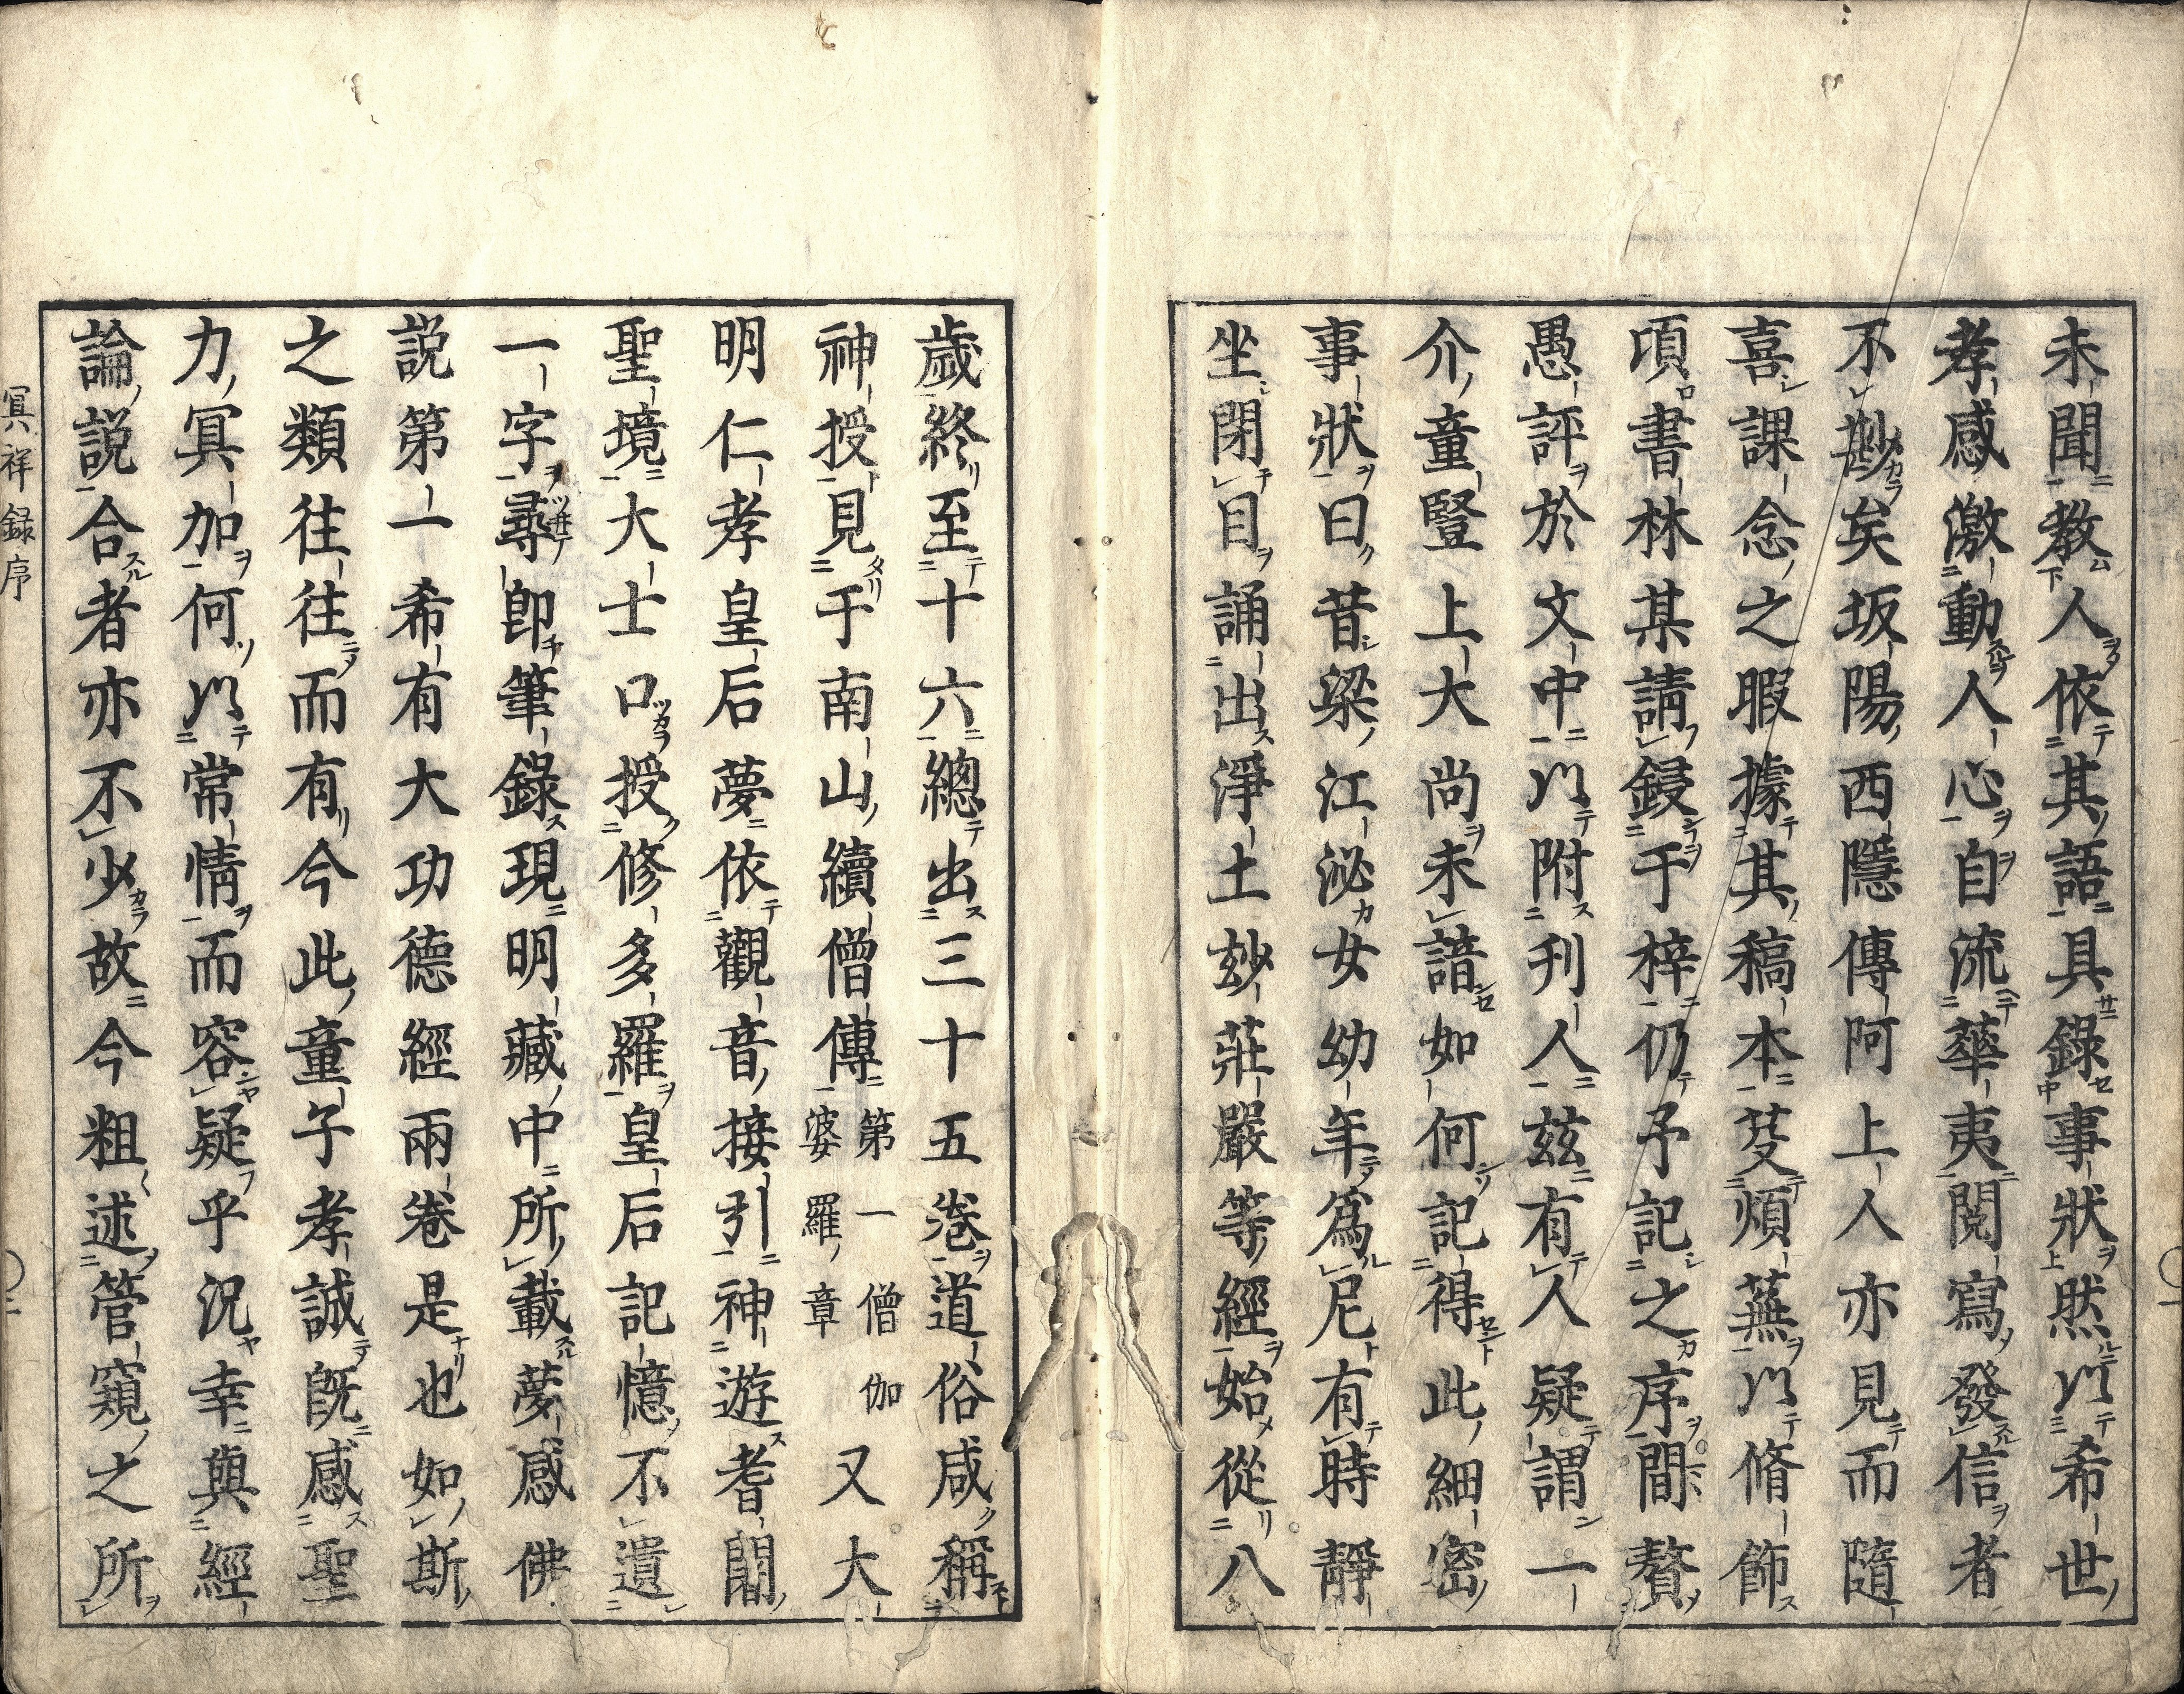 未聞教人依其語具錄事狀然以希世
孝感激動人心自流華夷閱寫發信者
不尠矣坂陽西隱傳阿上人亦見而隨
喜課念之暇據其稿本芟煩蕪以脩飾
頃書林某請鋟于梓仍予記之序間贅
愚評於文中以附刋人茲有人疑謂一
介童豎上大尚未諳如何記得此細密
事狀曰昔梁江泌女幼年爲尼有時靜
坐閉目誦出淨土玅莊嚴等經始從八
歲終至十六總出三十五卷道俗咸稱
神授見于南山續僧傳第一僧伽婆羅章又大
明仁孝皇后夢依觀音接引神遊耆闍
聖境大士口授修多羅皇后記憶不遺
一字尋即筆錄現明藏中所載夢感佛
説第一希有大功德經兩卷是也如斯
之類往往而有今此童子孝誠既感聖
力冥加何以常情而容疑乎況幸與經
論説合者亦不少故今粗述管窺之所
冥祥録序
二